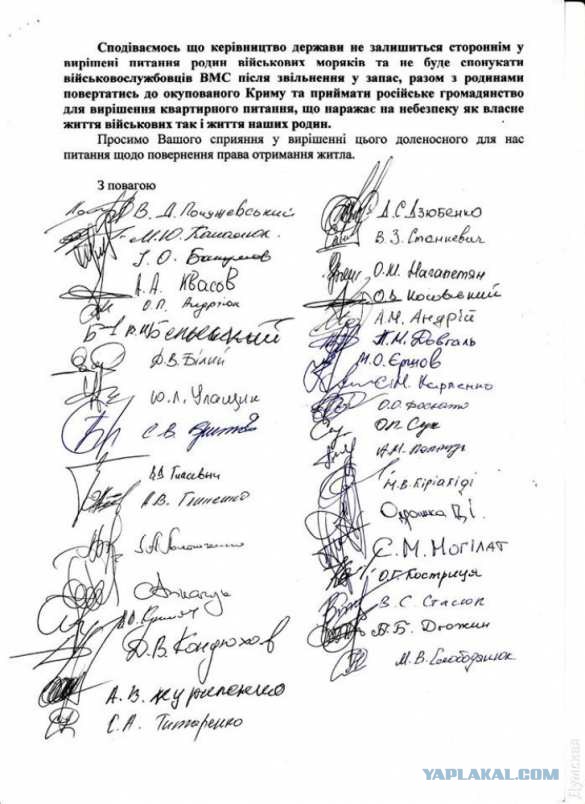 Сподіваємось що керівництво держави не залишиться стороннім у
вирішені питання родин військових моряків та не буде спонукати
військовослужбовців ВМС після звільнення у запас, разом з родинами
повертатись до окупованого Криму та приймати російське громадянство
для вирішення квартирного питання, що наражає на небезпеку як власне
життя військових так і життя наших родин.
Просимо Вашого сприяння у вирішенні цього доленосного для нас
питання щодо повернення права отримання житла.
З повагою
М.Ю.
І.О.
А.А. Квасов
О.П.
Д.В. Білий
Ю.Л. Улащик
С.В.
Д.В. Кондюхов
А.В. Журепенко
С.А. Титаренко
Д.С. Дзюбенко
В.З. Станкевич
О.Ш. Магапетян
О.В. Косовський
А.М. Андрій
П.М. Довгаль
М.О. Єршов
С.М. Карпенко
О.О. Фоскато
О.П. Сук
А.М.
М.В. Кіріакіді
Одрашка Ц.І.
С.М. Могілат
О.Г. Костриця
В.С. Стасюк
В.Б. Дюжин
М.В. Слободянюк
Думская
YAPLAKAL.COM